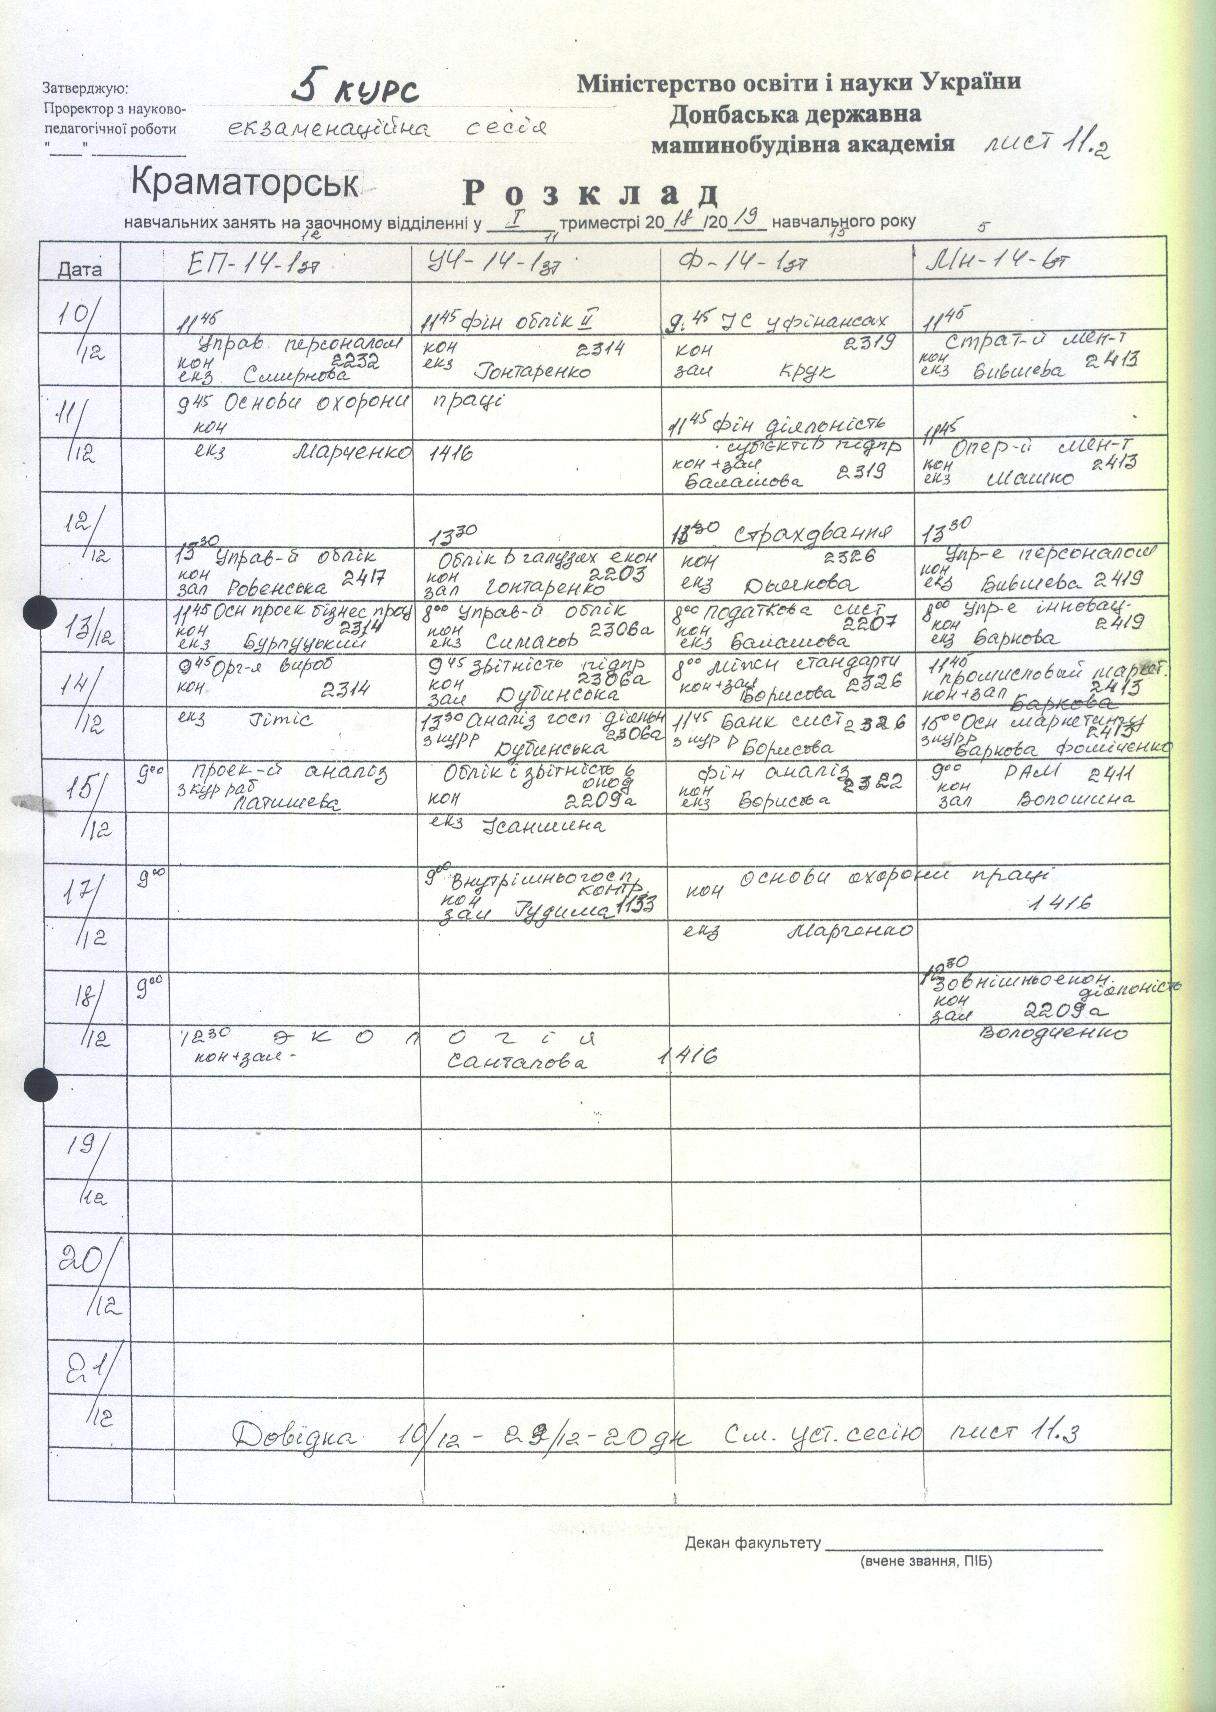 Затверджую:
Проректор з науково-
педагогічної роботи
"___" ____________
5 курс
екзаменаційна сесія
Міністерство освіти і науки України
Донбаська державна
машинобудівна академія
лист 11.2
Краматорськ
Розклад
навчальних занять на заочному відділенні у I триместрі 2018/2019 навчального року
12 11 15 5
Дата ЕП-14-1зт УЧ-14-1зт Ф-14-1зт МН-14-1зт
10/12
11 45
Управ. персоналом
кон 2232
екз Смирнова
11 45 фін облік II
кон 2314
екз Гонтаренко
9.45 ІС у фінансах
кон 2319
зал Крук
11 45
Страт-й мен-т
кон
екз Бившева 2413
11/12
9 45 Основи охорони праці
кон
екз Марченко 1416
11 45 фін діяльність
суб'єктів підпр
кон+зал
Балашова 2319
11 45
Опер-й мен-т
кон 2413
екз Машко
12/12
13 30 Управ-й облік
кон
зал Ровенська 2417
13 30
Облік в галузях екон
кон 2203
зал Гонтаренко
13 30 Страхдвання
кон 2326
екз Дьячкова
13 30
Упр-е персоналом
кон
екз Бившева 2419
13/12
11 45 Осн проек бізнес проц
кон 2314
екз Бурлуцький
8 00 Управ-й облік
кон
екз Симаков 2306а
8 00 Податкова сист
кон 2207
екз Балашова
8 00 Упр-е інновац-
кон 2419
екз Баркова
14/12
9 45 Орг-я вироб
кон 2314
екз Гітіс
9 45 Звітність підпр
кон 2306а
зал Дубинська
13 30 Аналіз госп діяльн
з кур р 2306а
Дубинська
8 00 Міжн стандарти
кон+зал
Борисова 2326
11 45 Банк сист 2326
з кур р Борисова
11 45
промисловый маркет.
кон+зал 2413
Баркова
15 00 Осн маркетингу
з кур р 2413
Баркова Фоміченко
15/12
9 00
Проек-й аналіз
з кур раб
Латишева
Облік і звітність в
опод
кон 2209а
екз Ісаншина
фін аналіз
кон 2322
екз Борисова
9 00 РАМ 2411
кон
зал Волошина
17/12
9 00
9 00 Внутрішньогосп
контр
кон
зал Гудима 1133
Основи охорони праці
кон
1416
екз Марченко
18/12
9 00
12 30 экологія
кон+зал -
Санталова 1416
30
Зовнішньоекон.
діяльність
кон
зал 2209а
Володченко
19/12
20/12
21/12
Довідка 10/12 - 29/12 - 20 дн См. уст. сесію лист 11.3
Декан факультету ____________
(вчене звання, ПІБ)